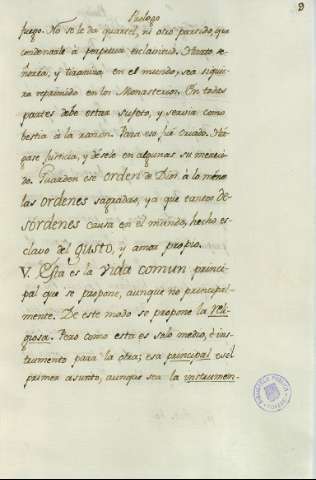 Prologo
9
fuego. No se le da quartel, ni otro partido, que
condenarle a perpetua esclavitud. Harto se-
ñorea, y tiraniza en el mundo; sea siquie-
ra reprimido en los Monasterios. En todas
partes debe estar sujeto, y servir como
bestia à la razon. Para eso fuè criado. Há-
gase justicia, y dèsele en algunas su mereci-
do. Guarden ese orden de Dios à lo menos
las ordenes sagradas, ya que tantos de-
sórdenes causa en el mundo, hecho es-
clavo del gusto, y amor propio.
V. Esta es la vida comun princi-
pal que se propone, aunque no principal-
mente. De este modo se propone la reli-
giosa. Pero como esta es solo medio, è ins-
trumento para la otra; esa principal es el
primer asunto, aunque sea la instrumen-
BIBLIOTECA PUBLICA
TOLEDO